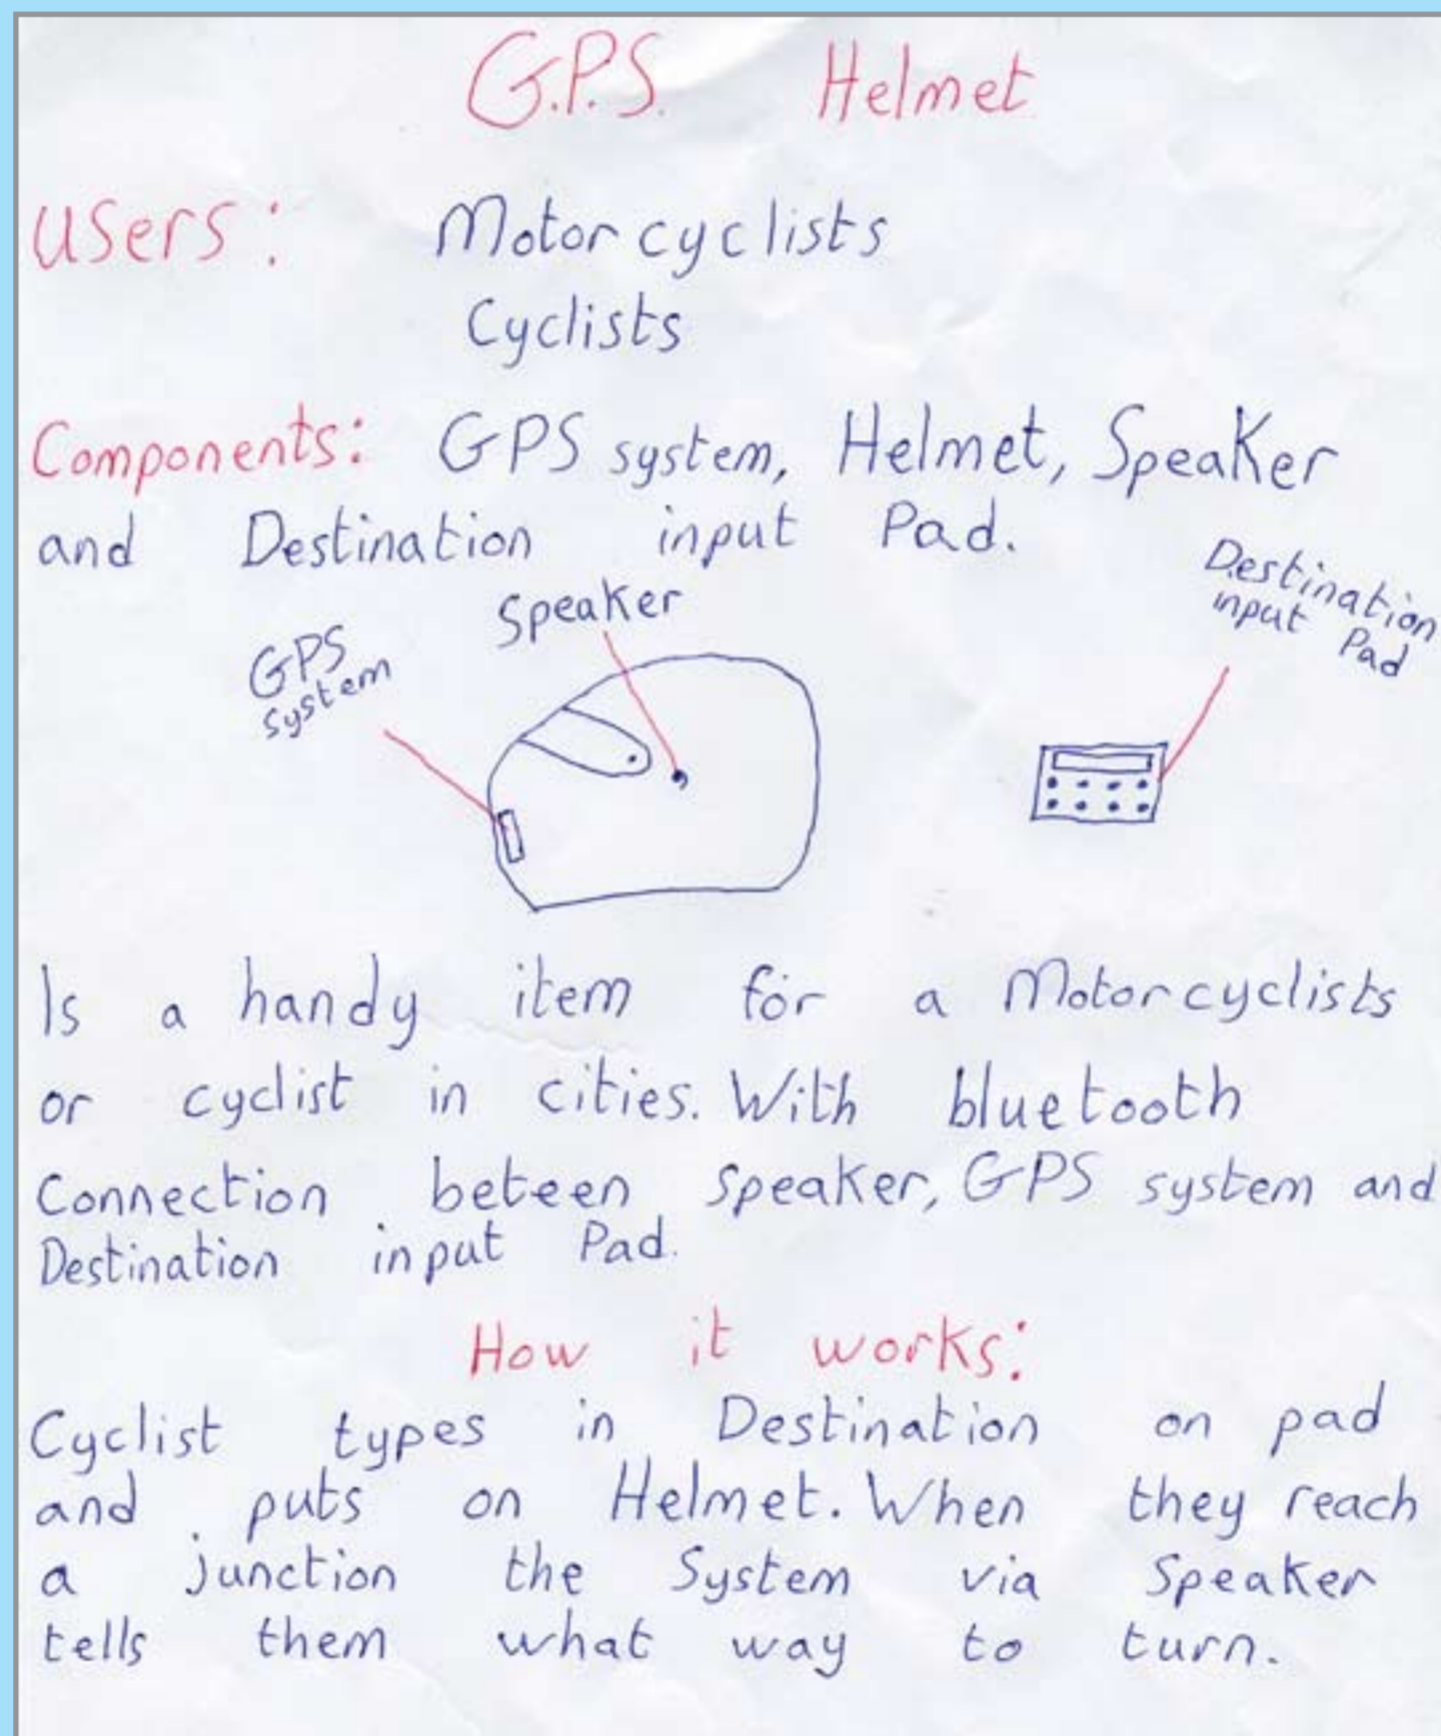 G.P.S. Helmet
Users: Motorcyclists
Cyclists
Components: GPS system, Helmet, Speaker
and Destination input Pad.
GPS
system
Speaker
Destination
input Pad
Is a handy item for a Motorcyclists
or cyclist in cities. With bluetooth
Connection beteen speaker, GPS system and
Destination input Pad.
How it works:
Cyclist types in Destination on pad
and puts on Helmet. When they reach
a junction the System via Speaker
tells them what way to turn.